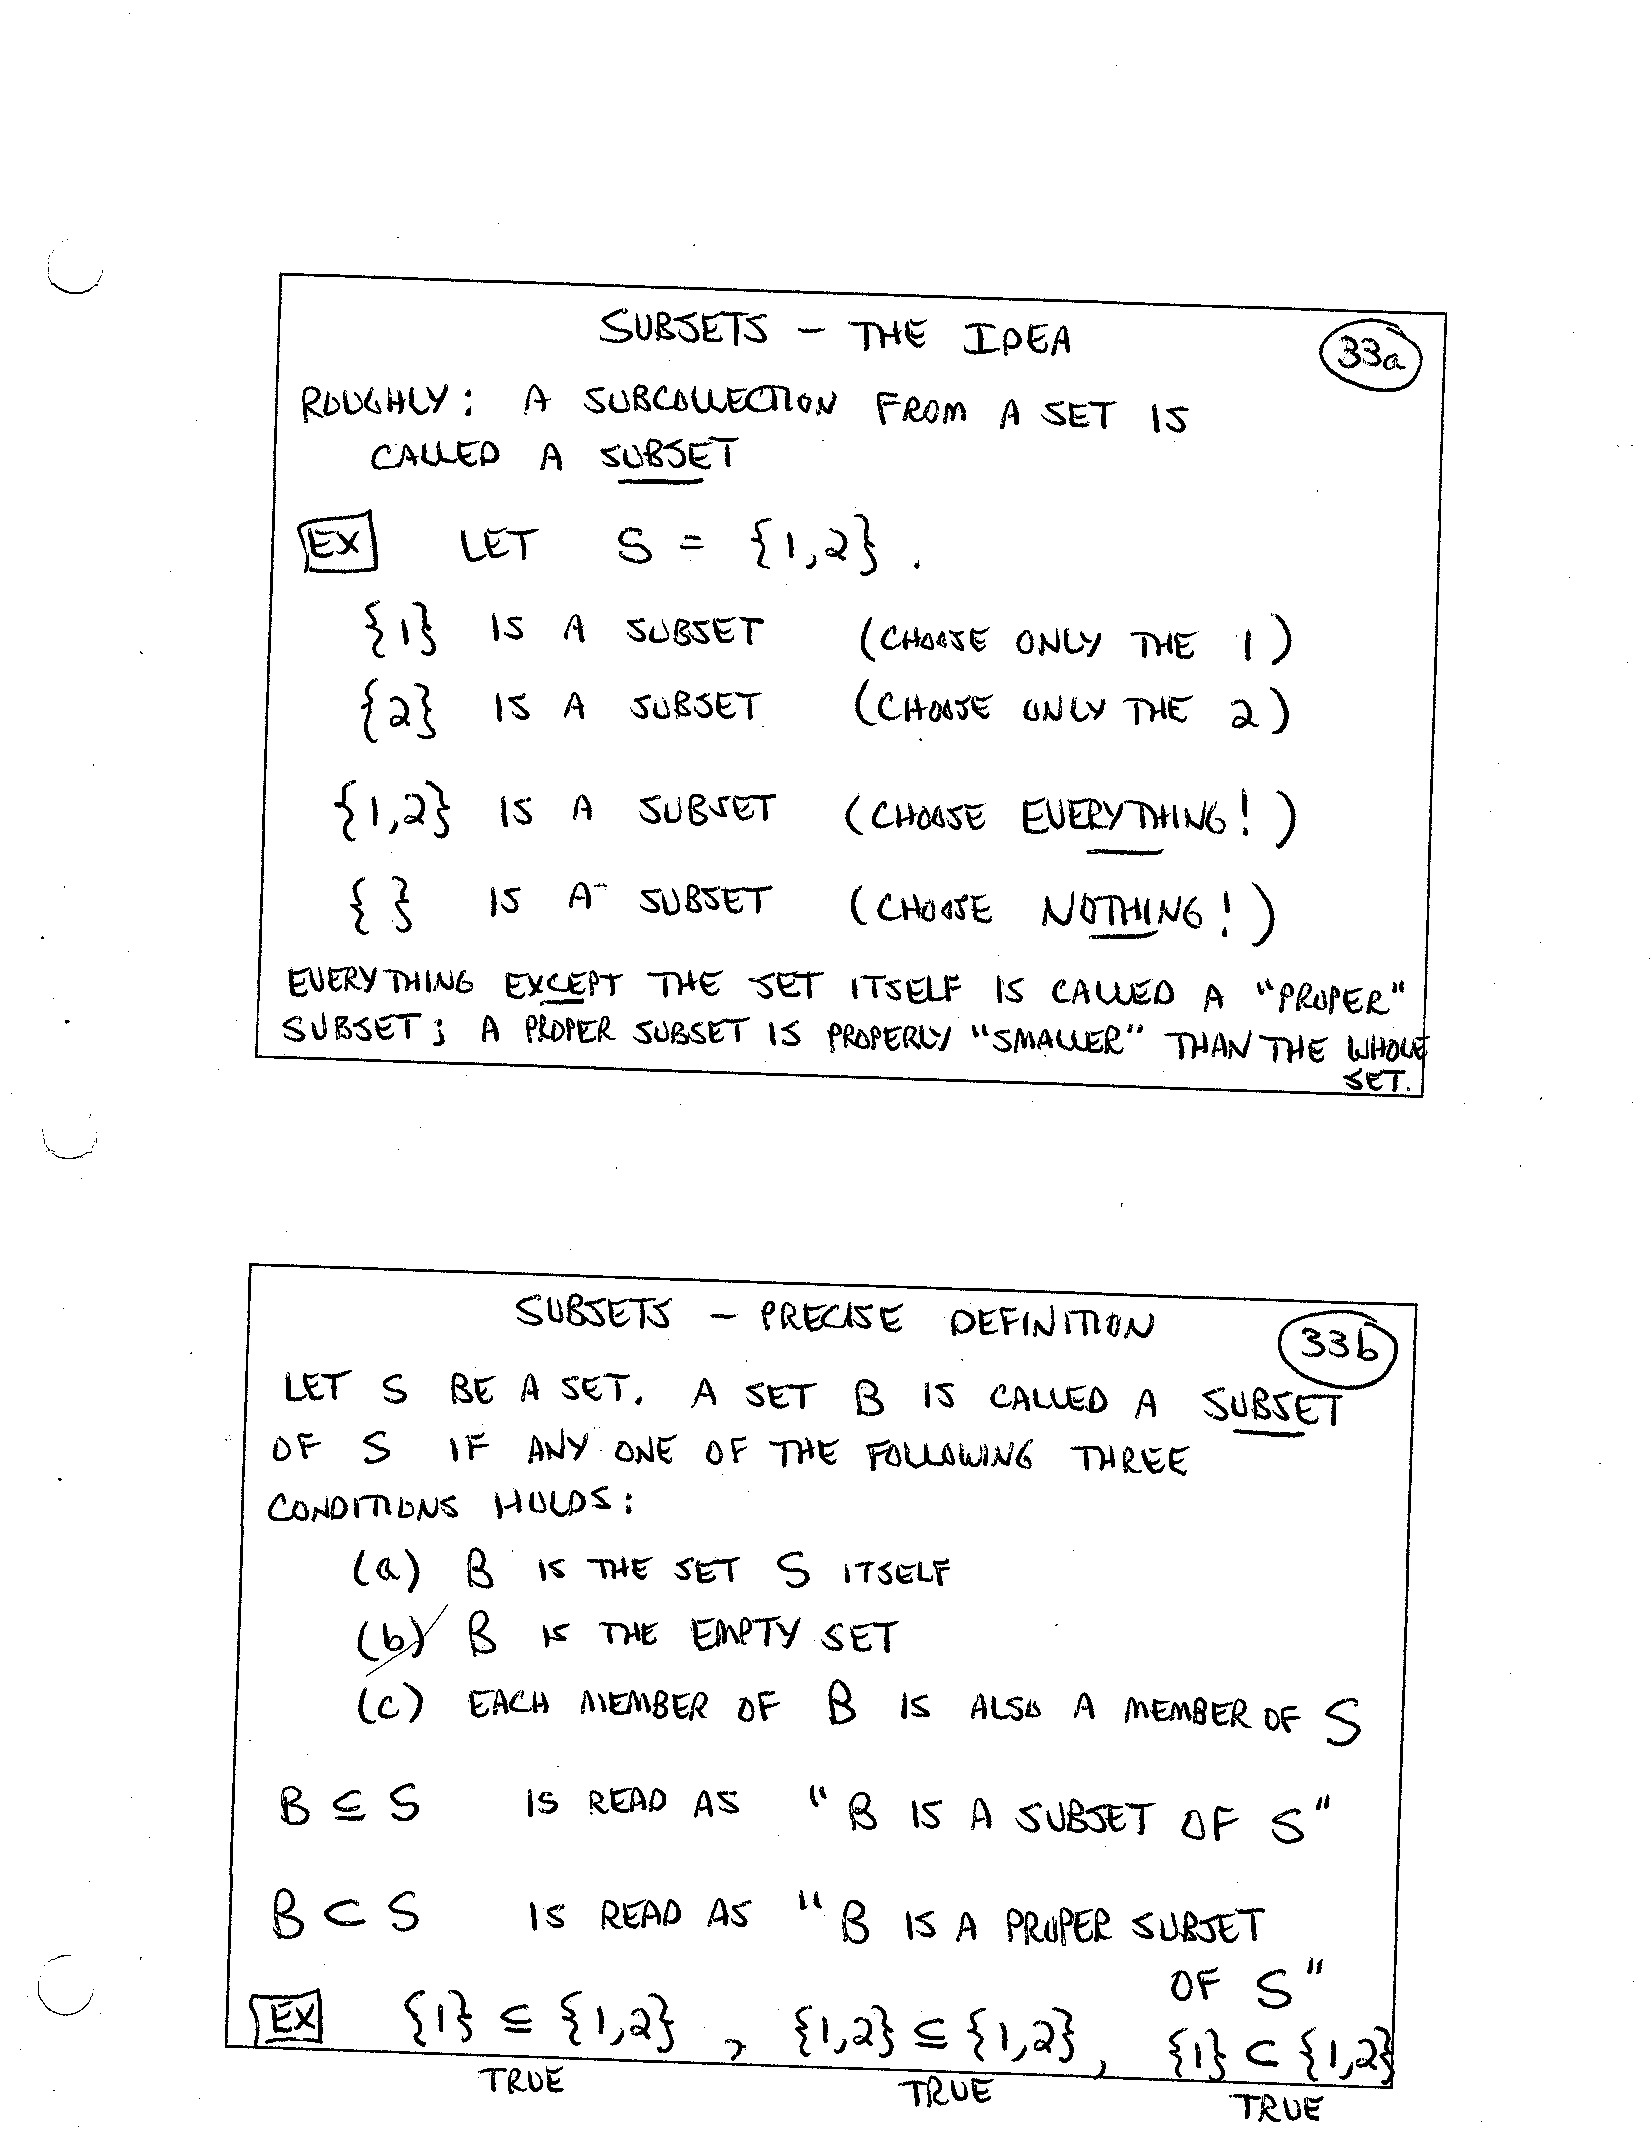 SUBSETS - THE IDEA
33a
ROUGHLY: A SUBCOLLECTION FROM A SET IS
CALLED A SUBSET
EX LET S = {1,2}.
{1} IS A SUBSET (CHOOSE ONLY THE 1)
{2} IS A SUBSET (CHOOSE ONLY THE 2)
{1,2} IS A SUBSET (CHOOSE EVERYTHING!)
{ } IS A SUBSET (CHOOSE NOTHING!)
EVERYTHING EXCEPT THE SET ITSELF IS CALLED A "PROPER"
SUBSET; A PROPER SUBSET IS PROPERLY "SMALLER" THAN THE WHOLE
SET.
SUBSETS - PRECISE DEFINITION
33b
LET S BE A SET. A SET B IS CALLED A SUBSET
OF S IF ANY ONE OF THE FOLLOWING THREE
CONDITIONS HOLDS:
(a) B IS THE SET S ITSELF
(b) B IS THE EMPTY SET
(c) EACH MEMBER OF B IS ALSO A MEMBER OF S
B ⊆ S IS READ AS "B IS A SUBSET OF S"
B ⊂ S IS READ AS "B IS A PROPER SUBSET
OF S"
EX {1} ⊆ {1,2} , {1,2} ⊆ {1,2} , {1} ⊂ {1,2}
TRUE TRUE TRUE